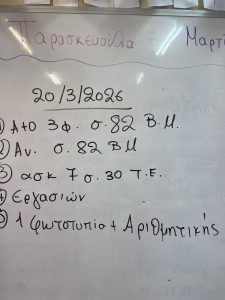 Παρασκευούλα : Μαρτί
20/3/2026
1) Α+Ο 3φ. σ.82 Β.Μ.
2) Αν. σ. 82 ΒΜ
3) ασκ 7 σ.30 Τ.Ε.
4) Εργασιών
5) 1 φωτοτυπία + Αριθμητικής